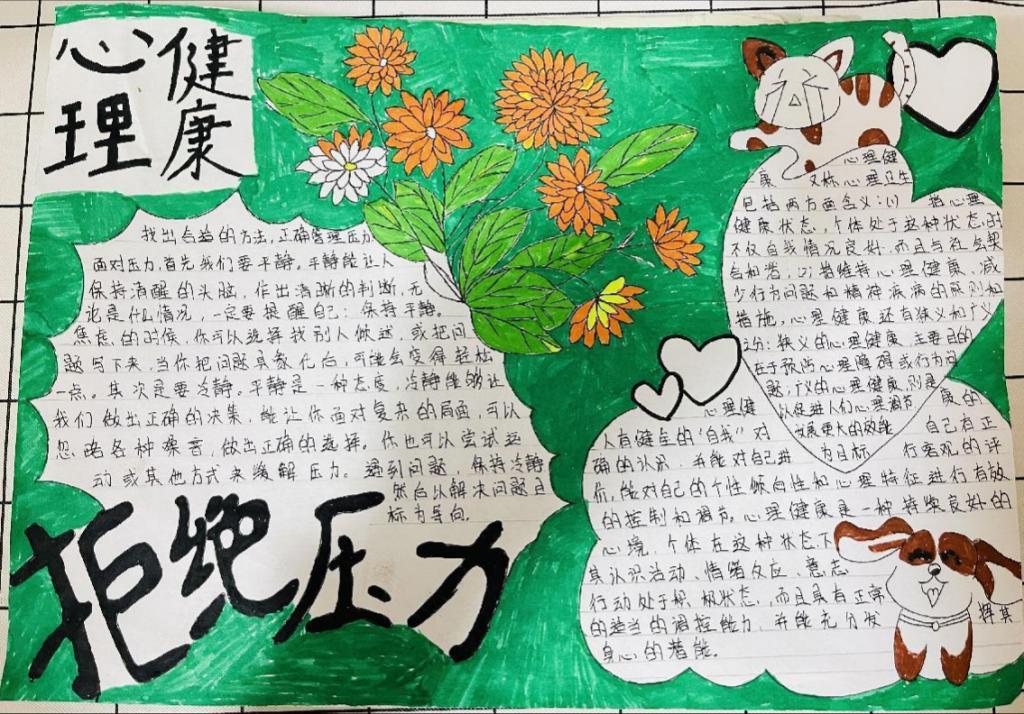 心理
健康
找出合适的方法，正确管理压力
面对压力，首先我们要平静。平静能让人
保持清醒的头脑，作出清晰的判断，无
论是什么情况，一定要提醒自己：保持平静。
焦虑的时候，你可以选择找别人倾述 或把问
题写下来，当你把问题具象化后，可能会变得轻松
一点。其次是要冷静。平静是一种态度，冷静能够让
我们做出正确的决策，能让你面对复杂的局面，可以
忽略各种噪音，做出正确的选择。你也可以尝试运
动或其他方式来缓解压力。遇到问题，保持冷静
然后以解决问题
标为导向。
拒绝压力
心理健
康 又称心理卫生
包括两方面含义：(1) 指心理
健康状态，个体处于这种状态时
不仅自我情况良好，而且与社会契
合和谐；(2)指维持心理健康、减
少行为问题和精神疾病的原则和
措施，心理健康还有狭义和广义
之分：狭义的心理健康，主要目的
在于预防心理障碍或行为问
题，广义的心理健康，则是
以促进人们心理调节
发展更大的效能
为目标
心理健康的
人有健全的“自我” 对自己有正
确的认识，并能对自己进行客观的评
价，能对自己的个性倾向性和心理特征进行有效
的控制和调节。心理健康是一种持续良好的
心境，个体在这种状态下
其认识活动、情绪反应、意志
行动处于积极状态，而且具有正常
的适当的调控能力，并能充分发挥其
身心的潜能。